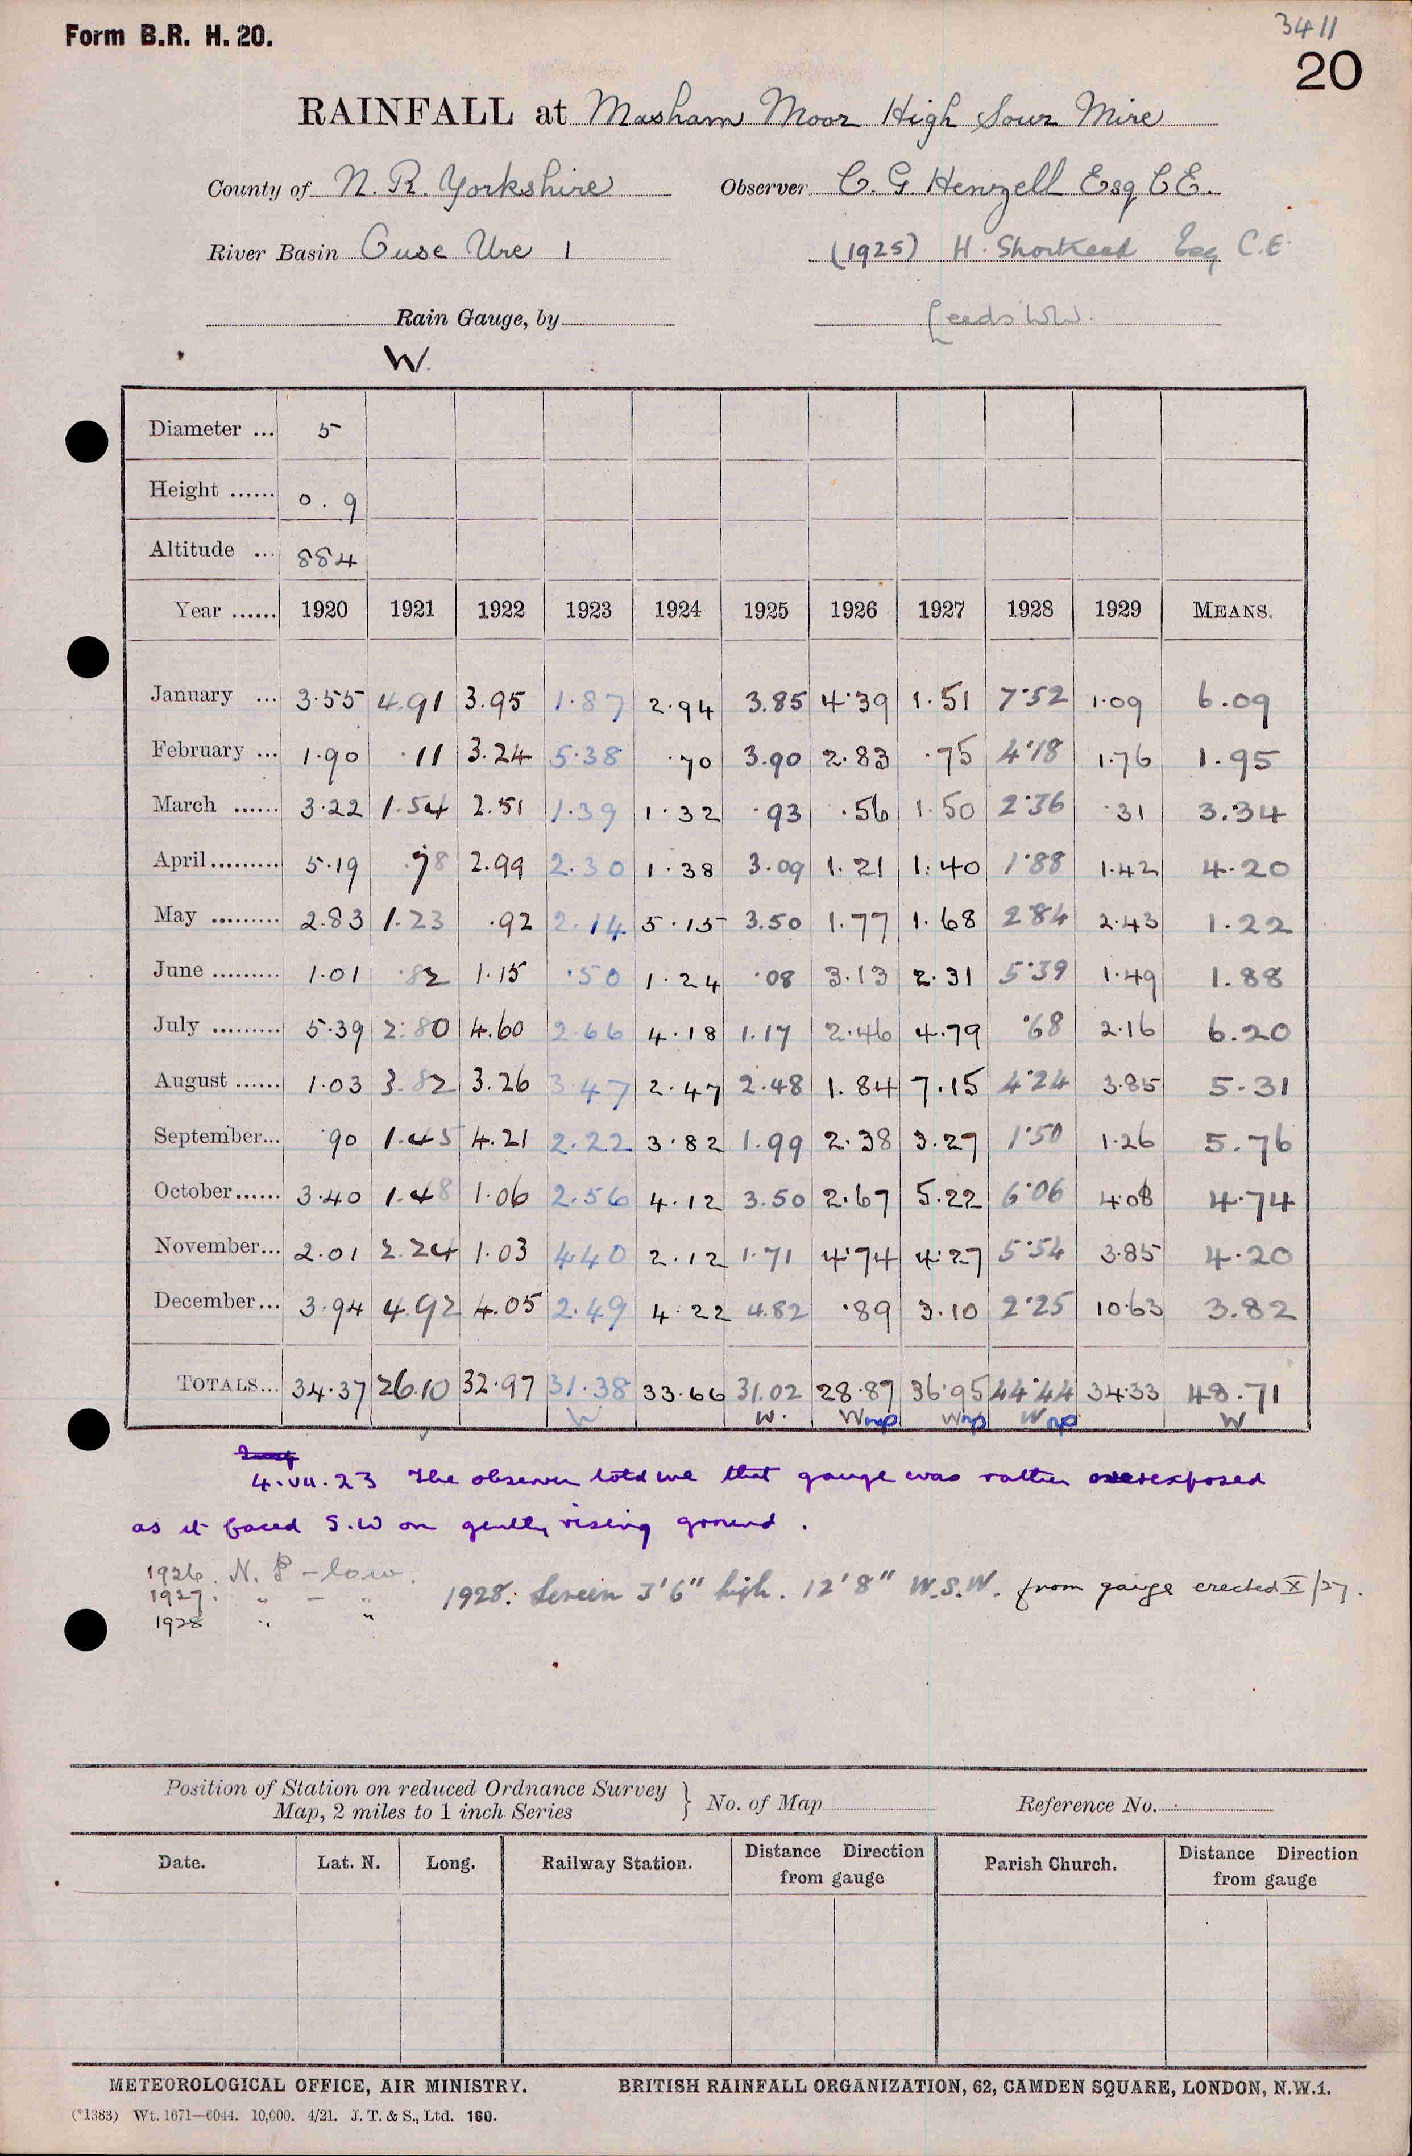 Form B.R. H. 20.
3411
20
RAINFALL at Masham Moor High Sour Mire
County of N. R. Yorkshire Observer C. G. Henzell Esq C.E.
River Basin Ouse Ure 1 (1925) H. Shortreed Esq C.E.
Rain Gauge, by Leeds W.W.
W.
Diameter ... 5
Height ...... 0.9
Altitude ... 884
Year ...... 1920 1921 1922 1923 1924 1925 1926 1927 1928 1929 MEANS.
January ... 3.55 4.91 3.95 1.87 2.94 3.85 4.39 1.51 7.52 1.09 6.09
February ... 1.90 .11 3.24 5.38 .70 3.90 2.83 .75 4.18 1.76 1.95
March ...... 3.22 1.54 2.51 1.39 1.32 .93 .56 1.50 2.36 .31 3.34
April......... 5.19 .78 2.99 2.30 1.38 3.09 1.21 1.40 1.88 1.42 4.20
May ......... 2.83 1.23 .92 2.14 5.15 3.50 1.77 1.68 2.84 2.43 1.22
June ......... 1.01 .82 1.15 .50 1.24 .08 3.13 2.31 5.39 1.49 1.88
July ......... 5.39 2.80 4.60 2.66 4.18 1.17 2.46 4.79 .68 2.16 6.20
August ...... 1.03 3.82 3.26 3.47 2.47 2.48 1.84 7.15 4.24 3.85 5.31
September... .90 1.45 4.21 2.22 3.82 1.99 2.38 3.27 1.50 1.26 5.76
October...... 3.40 1.48 1.06 2.56 4.12 3.50 2.67 5.22 6.06 4.08 4.74
November... 2.01 2.24 1.03 4.40 2.12 1.71 4.74 4.27 5.54 3.85 4.20
December... 3.94 4.92 4.05 2.49 4.22 4.82 .89 3.10 2.25 10.63 3.82
TOTALS... 34.37 26.10 32.97 31.38 33.66 31.02 28.87 36.95 44.44 34.33 48.71
W W. Wnp Wnp Wnp W
4.VII.23 The observer told me that gauge was rather overexposed
as it faced S.W on gently rising ground.
1926. N. P - low.
1927. " - "
1928 " "
1928: Screen 3' 6" high. 12' 8" W.S.W. from gauge erected X/27.
Position of Station on reduced Ordnance Survey
Map, 2 miles to 1 inch Series } No. of Map Reference No.
Date. Lat. N. Long. Railway Station. Distance Direction from gauge Parish Church. Distance Direction from gauge
METEOROLOGICAL OFFICE, AIR MINISTRY. BRITISH RAINFALL ORGANIZATION, 62, CAMDEN SQUARE, LONDON, N.W.1.
(*1383) Wt. 1671—6044. 10,000. 4/21. J. T. & S., Ltd. 160.